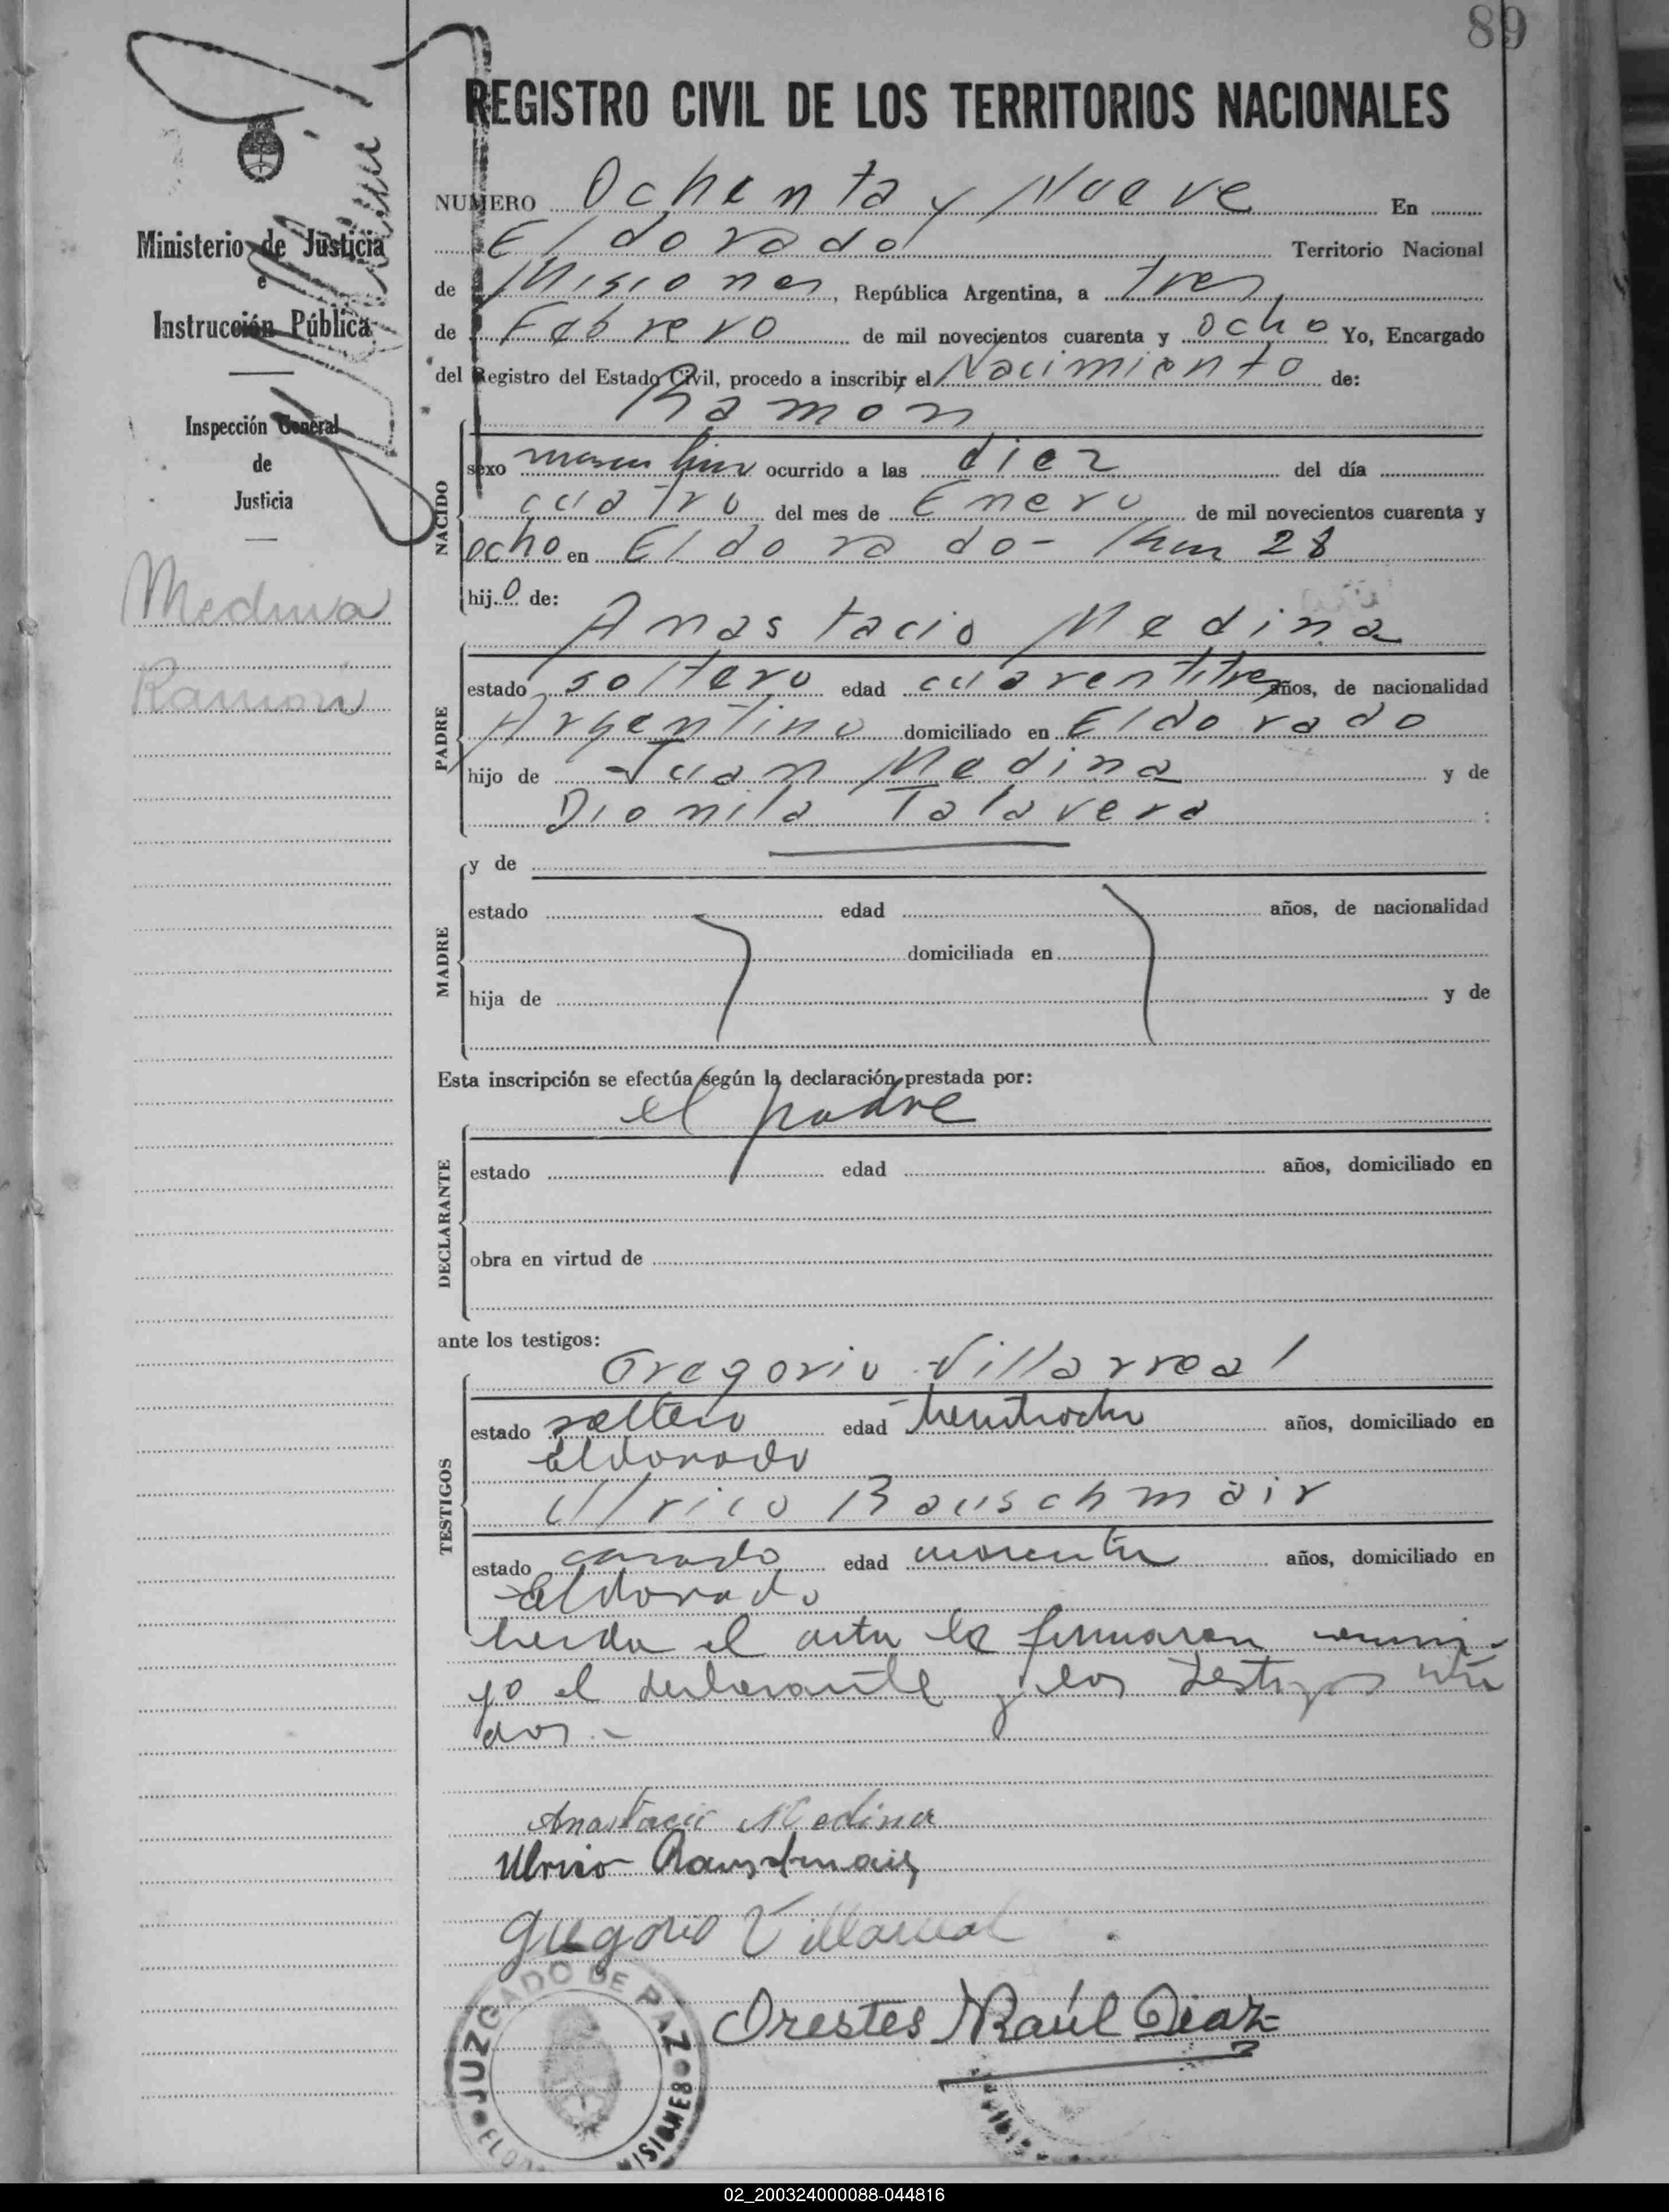 89
REGISTRO CIVIL DE LOS TERRITORIOS NACIONALES
Ministerio de Justicia
e
Instrucción Pública
Inspección General
de
Justicia
Medina
Ramón
NUMERO Ochenta y Nueve En
Eldorado Territorio Nacional
de Misiones, República Argentina, a tres
de Febrero de mil novecientos cuarenta y ocho Yo, Encargado
del Registro del Estado Civil, procedo a inscribir el Nacimiento de:
Ramon
NACIDO
sexo masculino ocurrido a las diez del día
cuatro del mes de Enero de mil novecientos cuarenta y
ocho en Eldorado - Km 28
hijo de:
Anastacio Medina
PADRE
estado soltero edad cuarentitres años, de nacionalidad
Argentino domiciliado en Eldorado
hijo de Juan Medina y de
Dionila Talavera :
MADRE
y de
estado edad años, de nacionalidad
domiciliada en
hija de y de
Esta inscripción se efectúa según la declaración prestada por:
el padre
DECLARANTE
estado edad años, domiciliado en
obra en virtud de
ante los testigos:
Gregorio Villarreal
TESTIGOS
estado soltero edad treintiocho años, domiciliado en
Eldorado
Ulrico Bauschmair
estado casado edad años, domiciliado en
Eldorado
Leida el acta la firmaron
el declarante y los testigos
dos.-
Anastacio Medina
Ulrico
Gregorio Villarreal
Orestes Raúl Diaz
JUZGADO DE PAZ
02_200324000088-044816